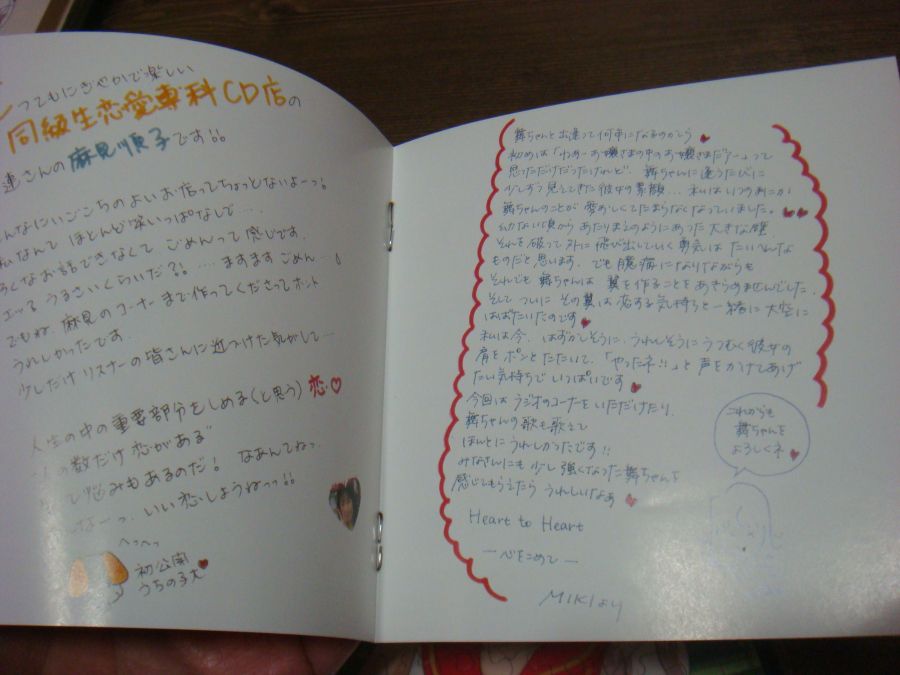 つてもにぎやかで楽しい
同級生恋愛専科CD店の
連さんの麻見順子です!!
んなにいごこちのよいお店ってちょっとないよーっ!
私なんて ほとんど笑いっぱなしで‥‥
ろくなお話できなくて ごめんって感じです。
エッ? うるさいくらいだ?! ‥‥ ますます ごめん‥!
でもね、麻見のコーナーまで作ってくださってホント
うれしかったです。
少しだけ リスナーの皆さんに近づけた気がして‥‥
人生の中の重要部分をしめる(と思う) 恋♡
の数だけ恋がある”
悩みもあるのだ! なあんてねっ
なーっ、いい恋しようねっっ!!
へへへっ
初公開
うちの子犬♥
舞ちゃんと出逢って何年になるのかしら♥
初めは「わあーお嬢さまの中のお嬢さまだァー」って
思っただけだったけれど、舞ちゃんに逢うたびに
少しずつ見えてきた彼女の素顔... 私はいつのまにか
舞ちゃんのことが 愛おしくてたまらなくなっていました。♥♥
幼ない頃から あたりまえのようにあった大きな
それを破って外に飛び出していく勇気は たいへんな
ものだと思います。でも臆病になりながらも
それでも舞ちゃんは 翼を作ることをあきらめませんでした。
そしてついに その翼は恋する気持ちと一緒に大空に
はばたいたのです♥
私は今、はずかしそうに、うれしそうにうつむく彼女の
肩をポンとたたいて、「やったネ!!」と声をかけてあげ
たい気持ちで いっぱいです♥
今回はラジオのコーナーをいただけたり、
舞ちゃんの歌も歌えて
ほんとにうれしかったです!!
みなさんにも少し強くなった舞ちゃんを
感じてもらえたら うれしいなぁ♥
Heart to Heart
— 心をこめて —
MIKIより
これからも
舞ちゃんを
よろしくネ♥